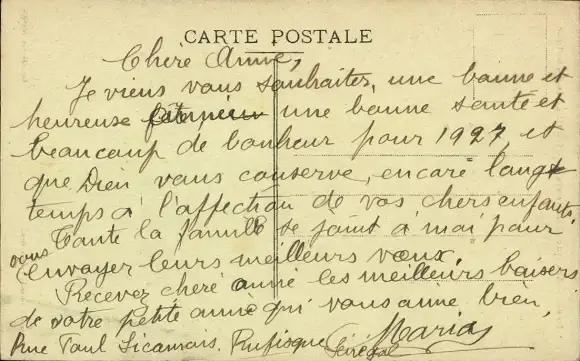 CARTE POSTALE
Chère Anna,
Je viens vous souhaiter, une bonne et
heureuse fête une bonne santé et
beaucoup de bonheur pour 1927, et
que Dieu vous conserve, encore long
temps à l'affection de vos chers enfants,
Toute la famille se joint à moi pour
vous envoyer leurs meilleurs vœux.
Recevez chère amie les meilleurs baisers
de votre petite amie qui vous aime bien,
Maria
Rue Paul Sicamois. Rufisque Sénégal